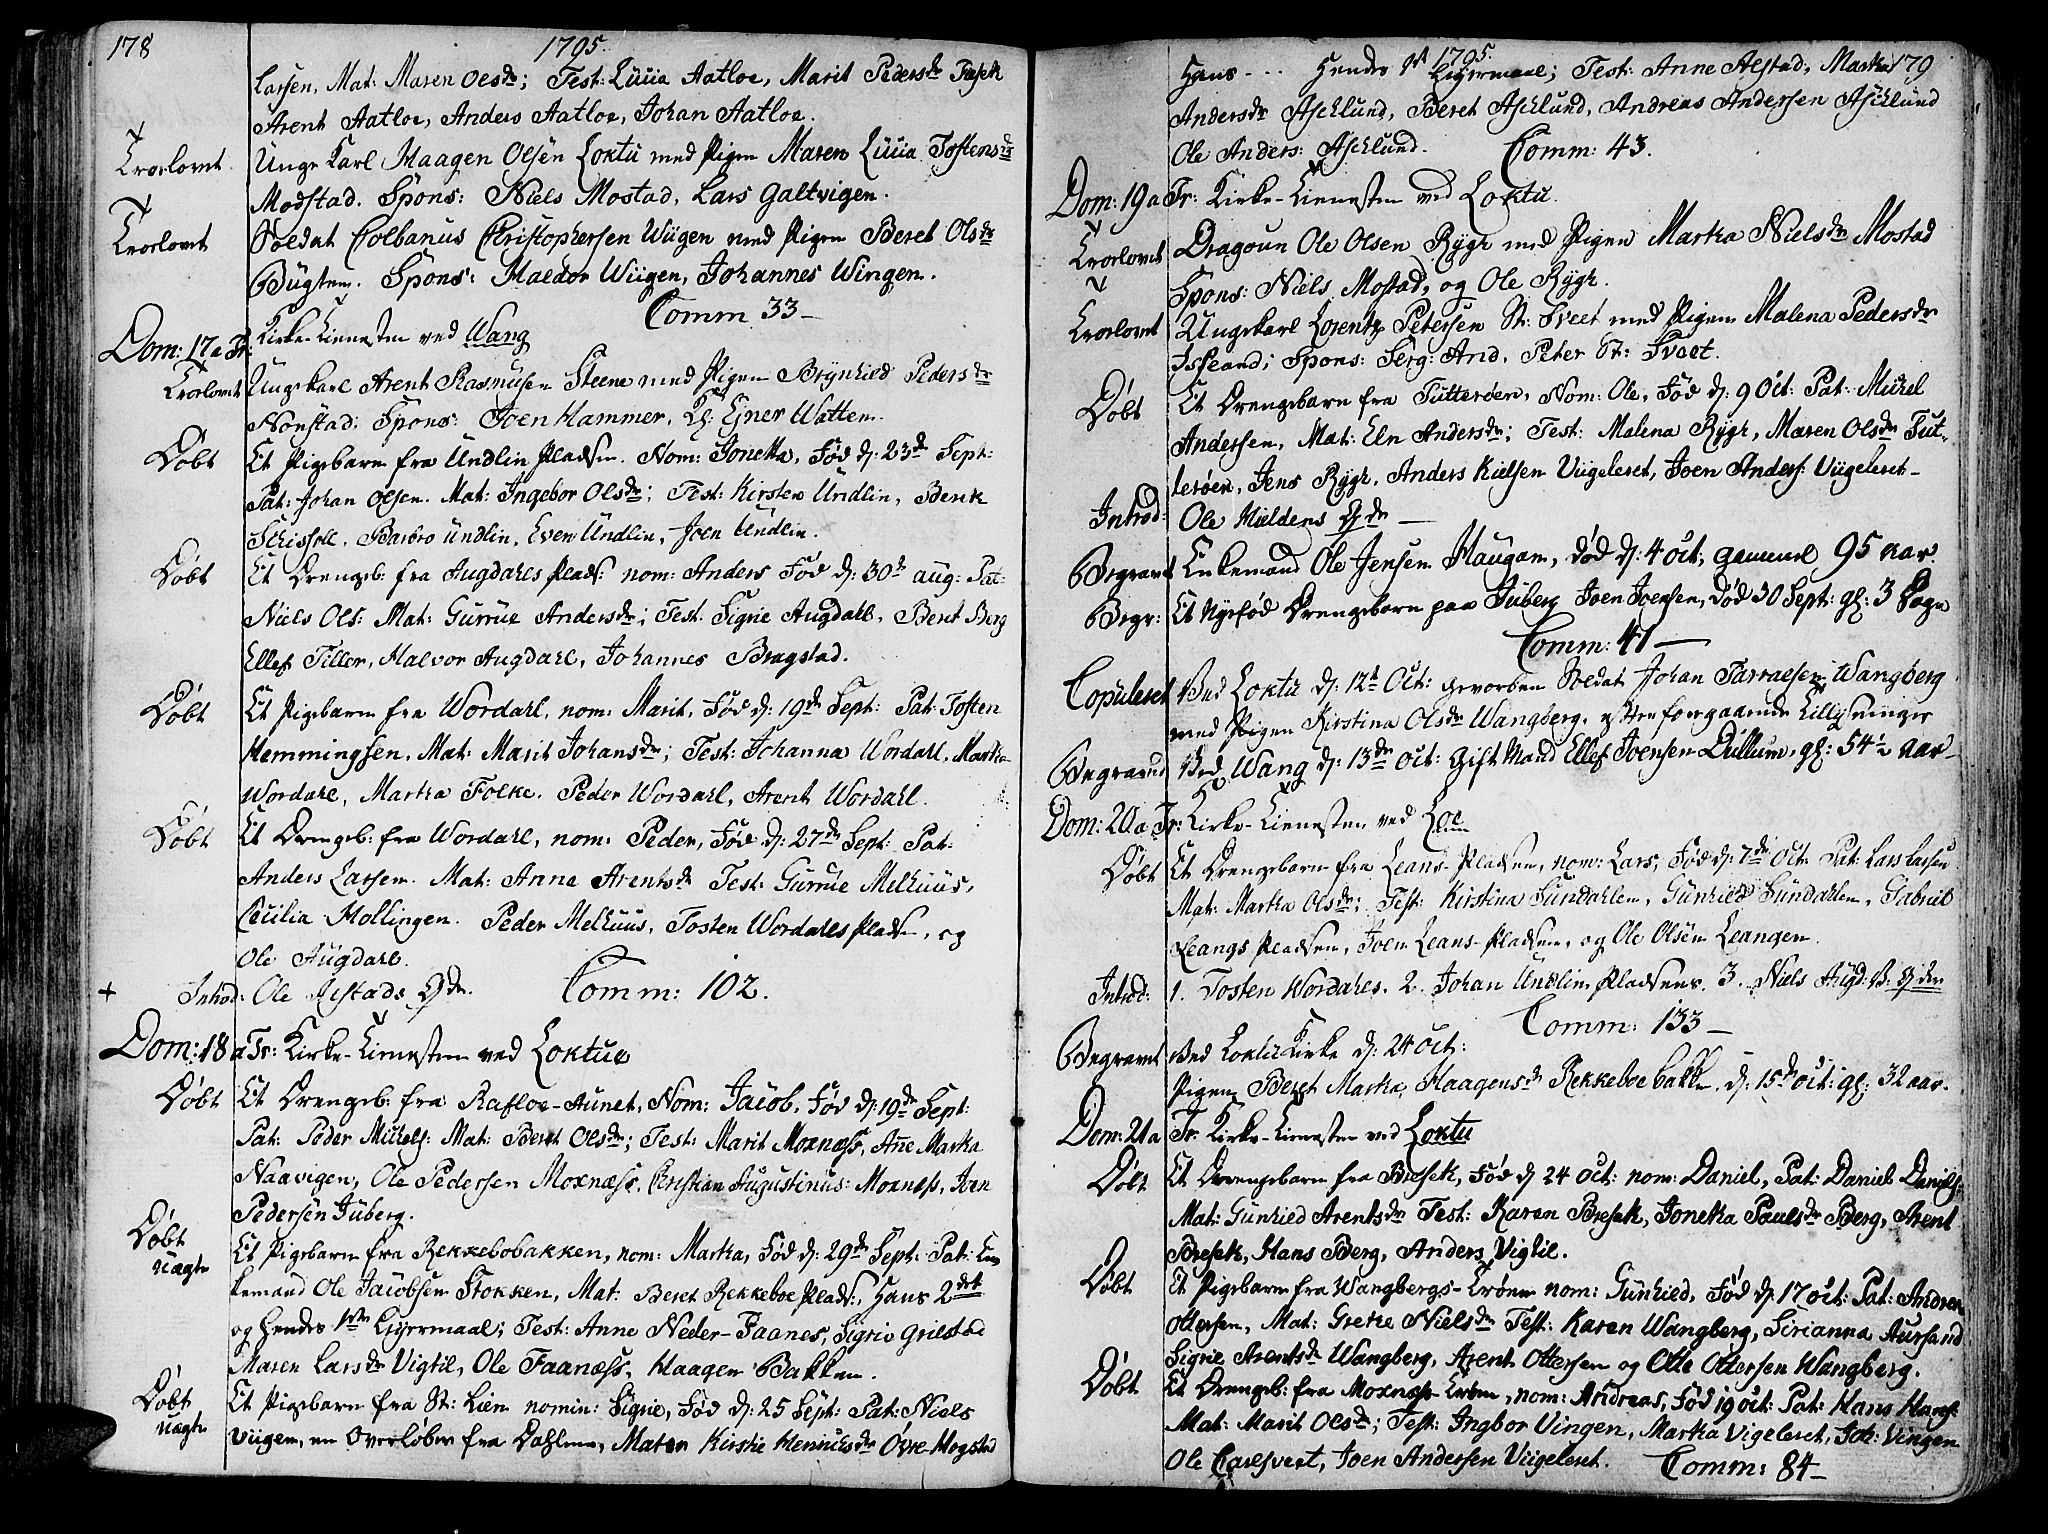 178
1795.
Larsen, Mat: Maren Olsdr; Test: Lucia Aatloe, Marit Pedersdr
Arent Aatloe, Anders Aatloe, Johan Aatloe.
Trorlovet
Unge Karl Haagen Olsen Loktu med Pigen Maren Lucia Tostensdr
Modstad. Spons: Niels Mostad, Lars Galtvigen.
Trorlovet
Soldat Colbanus Christophersen Wiigen med Pigen Beret Olsdr
Bügten. Spons: Haldor Wiigen, Johannes Wingen.
Comm 33 –
Dom: 17 a Tr: Kirke-Tienesten ved Wang
Trorlovet
Ungekarl Arent Rasmusen Steene med Pigen Brynhild Pedersdr
Nonstad; Spons: Joen Hammer, Ejner Watten.
Døbt
Et Pigebarn fra Undlin Pladsen. Nom: Jonetta, Fød d: 23de Sept:
Pat: Johan Olsen. Mat: Ingebor Olsdr; Test: Kirsten Undlin, Berit
Barbro Undlin, Even Undlin, Joen Undlin.
Døbt
Et Drengeb: fra Augdahls Plads: nom: Anders Fød d: 30te aug: Pat:
Niels Ols: Mat: Gurrue Andersdr; Test: Sigrie Augdahl, Berit Berg
Ellef Tiller, Halvor Augdahl, Johannes Bragstad.
Døbt
Et Pigebarn fra Wordahl, nom: Marit, Fød d: 19de Sept: Pat: Tosten
Hemmingsen. Mat: Marit Johansdr; Test: Johanna Wordahl, Martha
Wordahl, Martha Folke. Peder Wordahl, Arent Wordahl.
Døbt
Et Drengeb: fra Wordahl, nom: Peder, Fød d: 27de Sept: Pat:
Anders Larsen. Mat: Anne Arentsdr Test: Gurrue Melhuus,
Cecilia Hollingen. Peder Melhuus, Tosten Wordahls Pladsen, og
Ole Augdahl.
+ Introd: Ole Alstads Qde. Comm: 102.
Dom: 18 a Tr: Kirke-Tienesten ved Loktue
Døbt
Et Drengeb: fra Rafloe-Aunet, Nom: Jacob, Fød d: 19de Sept:
Pat: Peder Michels: Mat: Beret Olsdr; Test: Marit Moxnæss, Añe Marta
Naavigen, Ole Pedersen Moxnæss, Christian Augustinus: Moxnæss, Joen
Pedersen Juberg.
Døbt uægte
Et Pigebarn fra Rekkebobakken, nom: Marta, Fød d: 29de Sept: Pat: En-
kemand Ole Jacobsen Stokken, Mat: Beret Rekkeboe Plads:, Hans 2det
og Hendes 1ste Leyrmaal; Test: Anne Neder-Faanes, Sigrie Grilstad
Maren Larsdr Vigtil, Ole Faanæss, Haagen Bakken.
Døbt uægte
Et Pigebarn fra St: Lien nomin: Sigrie, Fød d: 25 Sept: Pat: Niels
Viigen, en Overløber fra Dahlene, Mater Kirstie Henrichsdr Øvre Hogstad
1795. 179
Hans ... Hendes 1st Leyrmaal; Test: Anne Alstad, Marta
Andersdr Aschlund, Beret Aschlund, Andreas Andersen Aschlund
Ole Anders: Aschlund. Comm: 43.
Dom: 19 a Tr: Kirke-Tienesten ved Loktu.
Trorlovet
Dragoun Ole Olsen Rygh med Pigen Martha Nielsdr Mostad
Spons: Niels Mostad, og Ole Rygh.
Trorlovet
Ungekarl Lorentz Petersen St: Tveet med Pigen Malena Pedersdr
Isseland; Spons: Serg: And. Peter St: Tveet.
Døbt
Et Drengebarn fra Tutterøen, Nom: Ole, Fød d: 9 Oct: Pat: Michel
Andersen, Mat: Eln Andersdr; Test: Malena Rygh, Maren Olsdr Tut-
terøen, Jens Rygh, Anders Kielsen Viigeleret, Joen Anders: Viigeleret –
Introd: Ole Hieldens Qde –
Begravet Enkemand Ole Jensen Haugan, død d: 4 Oct, gammel 95 aar.
Begr: Et Nyefød Drengebarn paa Juberg Joen Joensen, død 30 Sept: gl: 3 Dage
Comm: 41 –
Copuleret Ved Loktu d: 12te Oct: gevorben Soldat Johan Tarraldsen Wangberg
med Pigen Kirstina Olsdr Wangberg, efter foregaaende Tillysninger
Begravet Ved Wang d: 13de Oct: Gift Mand Ellef Joensen Dullum, gl: 54½ aar –
Dom: 20 a Tr: Kirke-Tienesten ved
Døbt
Et Drengebarn fra Leans-Pladsen, nom: Lars, Fød d: 7de Oct. Pat: Lars Larsen
Mat: Martha Olsdr; Test: Kirstina Sundahlen, Gunhild Sundahlen, Gabriel
Leangs Pladsen, Joen Leans-Pladsen, og Ole Olsen Leangen.
Introd: 1. Tosten Wordahls. 2. Johan Undlin Pladsens. 3. Niels Augd: Pl: Qder
Comm: 133 –
Begravet Ved Loktu Kirke d: 24 Oct:
Pigen Beret Martha Haagensdr Rekkeboe bakken d: 15de Oct: gl: 32 aar.
Dom: 21 a Tr: Kirke-Tienesten ved Loktu
Døbt
Et Drengebarn fra Bresek, Fød d 24 Oct: nom: Daniel, Pat: Daniel Daniels:
Mat: Gunhild Arentsdr Test: Karen Bresek, Joneta Paulsdr Berg, Arent
Bresek, Hans Berg, Anders Vigtil.
Døbt
Et Pigebarn fra Wangbergs-Trøen nom: Gunhild, Fød d: 17 Oct: Pat: Andrea
Ottersen, Mat: Grethe Nielsdr Test: Karen Wangberg, Sirianna Aursand
Sigrie Arentsdr Wangberg, Arent Ottersen og Otte Ottersen Wangberg.
Døbt
Et Drengeb: fra Moxnæss-Trøen, nom: Andreas, Fød 19 Oct: Pat: Hans Hans:
Mat: Marit Olsdr; Test: Ingbor Vingen, Martha Vigeleret, Joh: Vingen
Ole Carlsvert, Joen Andersen Viigeleret. Comm: 84 –